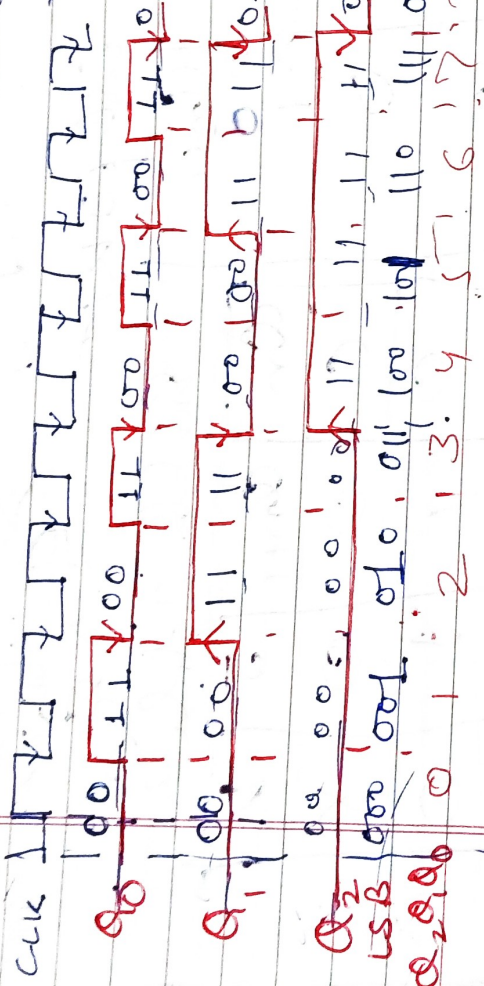 CLK
Q0 00 11 00 11 00 11 00 11 0
Q1 00 00 11 11 00 00 11 11 0
Q2 00 00 00 00 11 11 11 11 0
LSB 000 001 010 011 100 101 110 111 0
Q2 Q1 Q0 0 1 2 3 4 5 6 7